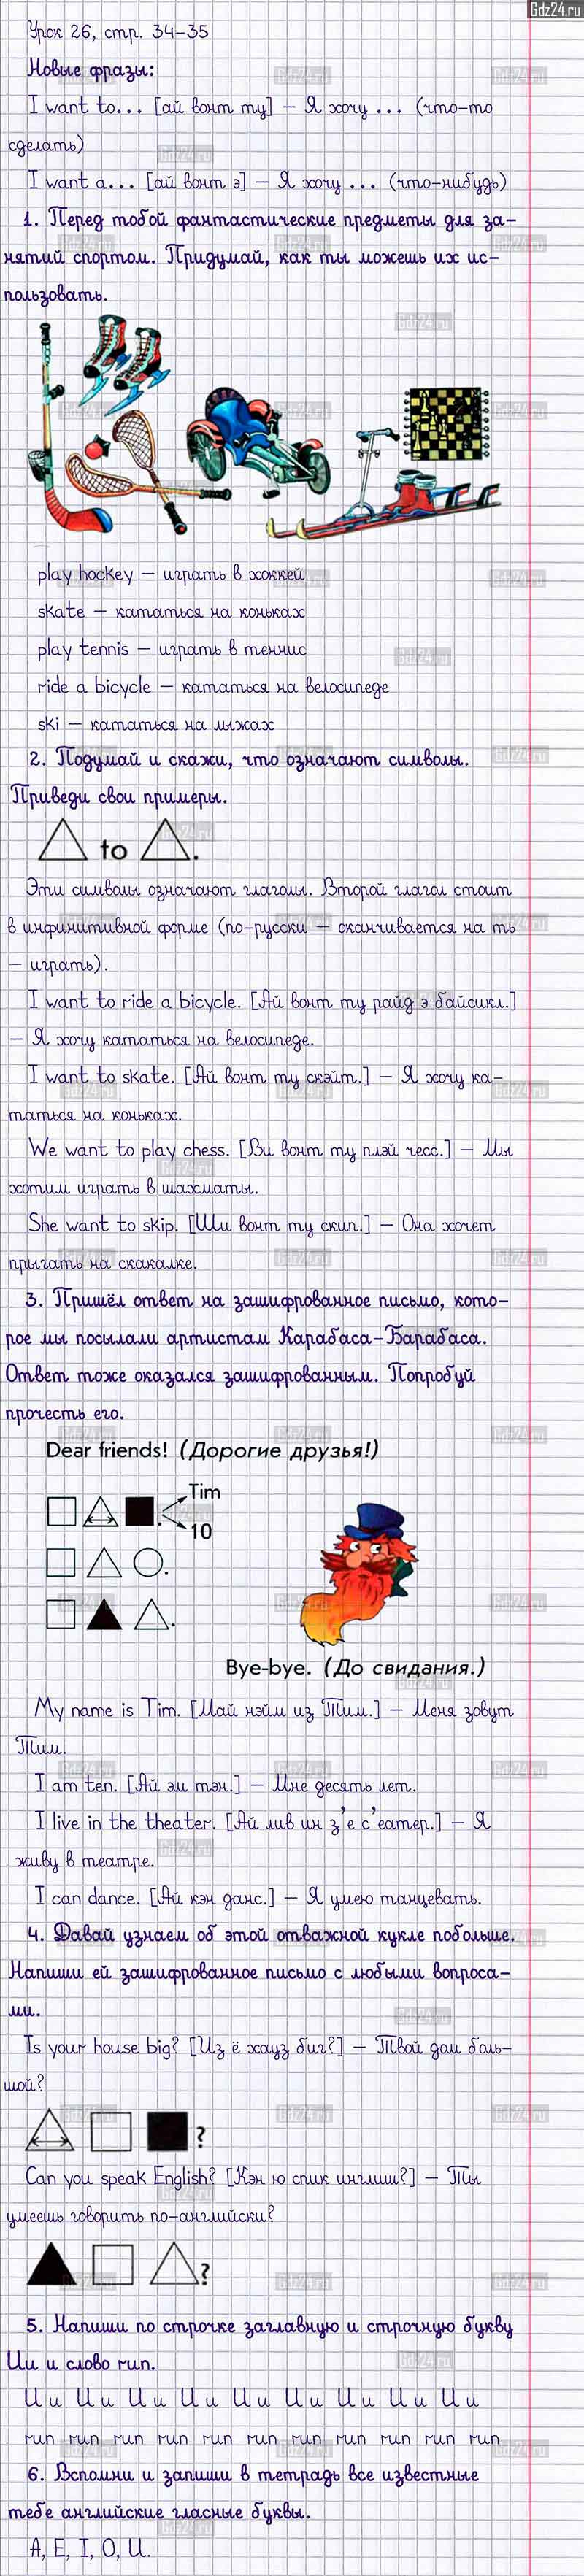 Gdz24.ru
Урок 26, стр. 34–35
Новые фразы:
I want to... [ай вонт ту] – Я хочу ... (что-то
сделать)
I want a... [ай вонт э] – Я хочу ... (что-нибудь)
1. Перед тобой фантастические предметы для за-
нятий спортом. Придумай, как ты можешь их ис-
пользовать.
play hockey – играть в хоккей
skate – кататься на коньках
play tennis – играть в теннис
ride a bicycle – кататься на велосипеде
ski – кататься на лыжах
2. Подумай и скажи, что означают символы.
Приведи свои примеры.
to .
Эти символы означают глаголы. Второй глагол стоит
в инфинитивной форме (по-русски – оканчивается на ть
– играть).
I want to ride a bicycle. [Ай вонт ту райд э байсикл.]
– Я хочу кататься на велосипеде.
I want to skate. [Ай вонт ту скэйт.] – Я хочу ка-
таться на коньках.
We want to play chess. [Ви вонт ту плэй чесс.] – Мы
хотим играть в шахматы.
She want to skip. [Ши вонт ту скип.] – Она хочет
прыгать на скакалке.
3. Пришёл ответ на зашифрованное письмо, кото-
рое мы посылали артистам Карабаса-Барабаса.
Ответ тоже оказался зашифрованным. Попробуй
прочесть его.
Dear friends! (Дорогие друзья!)
Tim
10
Bye-bye. (До свидания.)
My name is Tim. [Май нэйм из Тим.] – Меня зовут
Тим.
I am ten. [Ай эм тэн.] – Мне десять лет.
I live in the theater. [Ай лив ин з’е с’еатер.] – Я
живу в театре.
I can dance. [Ай кэн данс.] – Я умею танцевать.
4. Давай узнаем об этой отважной кукле побольше.
Напиши ей зашифрованное письмо с любыми вопроса-
ми.
Is your house big? [Из ё хауз биг?] – Твой дом боль-
шой?
?
Can you speak English? [Кэн ю спик инглиш?] – Ты
умеешь говорить по-английски?
?
5. Напиши по строчке заглавную и строчную букву
Uu и слово run.
U u U u U u U u U u U u U u U u U u
run run run run run run run run run run run
6. Вспомни и запиши в тетрадь все известные
тебе английские гласные буквы.
A, E, I, O, U.